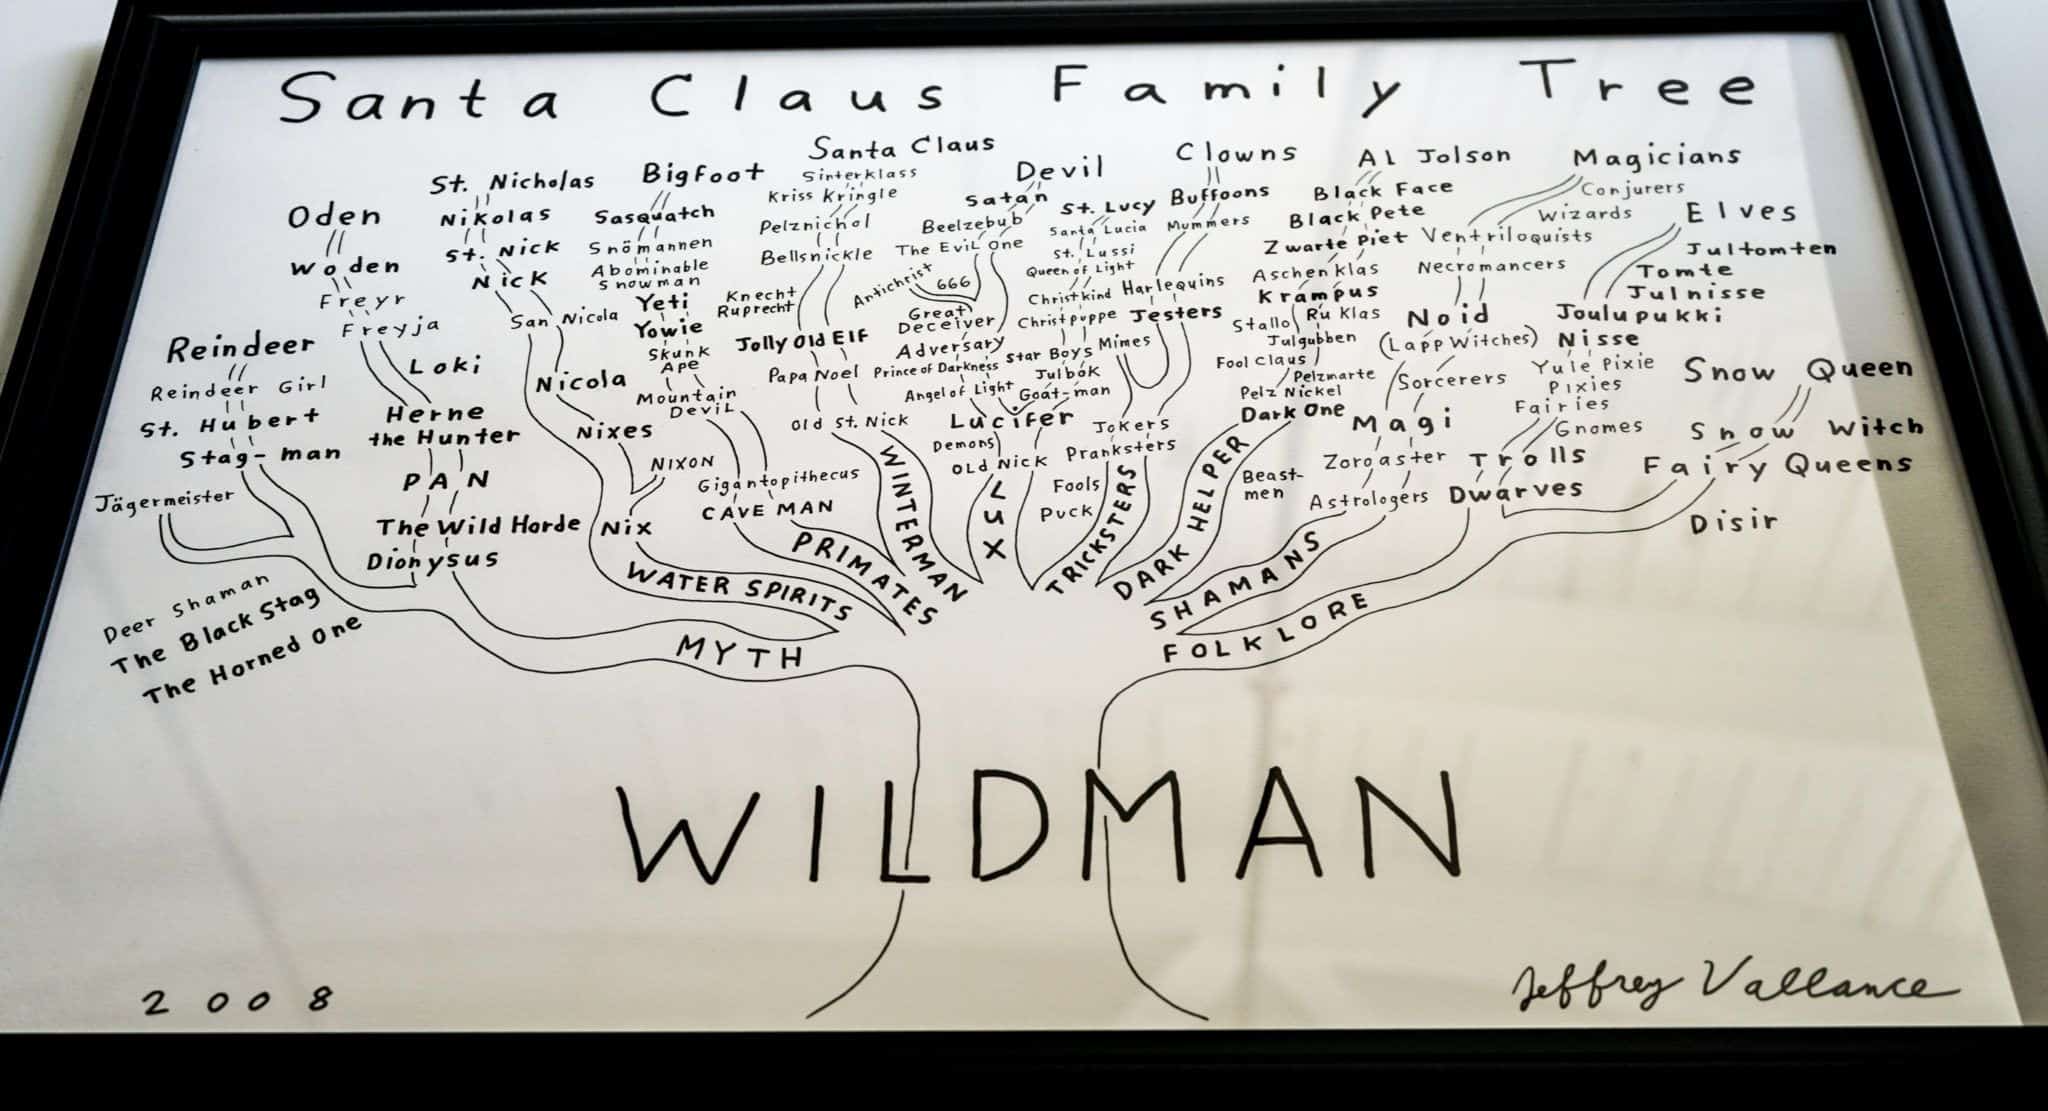 Santa Claus Family Tree
Reindeer
Reindeer Girl
St. Hubert
Stag-man
Jägermeister
Deer Shaman
The Black Stag
The Horned One
Oden
Woden
Freyr
Freyja
Loki
Herne
the Hunter
PAN
The Wild Horde
Dionysus
MYTH
St. Nicholas
Nikolas
St. Nick
Nick
San Nicola
Nicola
Nixes
NIXON
Nix
WATER SPIRITS
Bigfoot
Sasquatch
Snömannen
Abominable
Snowman
Yeti
Yowie
Skunk
Ape
Mountain
Devil
Gigantopithecus
CAVE MAN
PRIMATES
Santa Claus
Sinterklass
Kriss Kringle
Pelznichol
Bellsnickle
Knecht
Ruprecht
Jolly Old Elf
Papa Noel
Old St. Nick
WINTERMAN
Devil
Satan
Beelzebub
The Evil One
Antichrist
666
Great
Deceiver
Adversary
Prince of Darkness
Angel of Light
Lucifer
Demons
Old Nick
LUX
St. Lucy
Santa Lucia
St. Lussi
Queen of Light
Christkind
Christpuppe
Star Boys
Julbok
Goat-man
Clowns
Buffoons
Mummers
Harlequins
Jesters
Mimes
Jokers
Pranksters
Fools
Puck
TRICKSTERS
AL Jolson
Black Face
Black Pete
Zwarte Piet
Aschenklas
Krampus
Stallo
Ru Klas
Julgubben
Fool Claus
Pelzmarte
Pelz Nickel
Dark One
Beast-
men
DARK HELPER
Magicians
Conjurers
Wizards
Ventriloquists
Necromancers
Noid
(Lapp Witches)
Sorcerers
Magi
Zoroaster
Astrologers
SHAMANS
Elves
Jultomten
Tomte
Julnisse
Joulupukki
Nisse
Yule Pixie
Pixies
Fairies
Gnomes
Trolls
Dwarves
Snow Queen
Snow Witch
Fairy Queens
Disir
FOLKLORE
WILDMAN
2008
Jeffrey Vallance